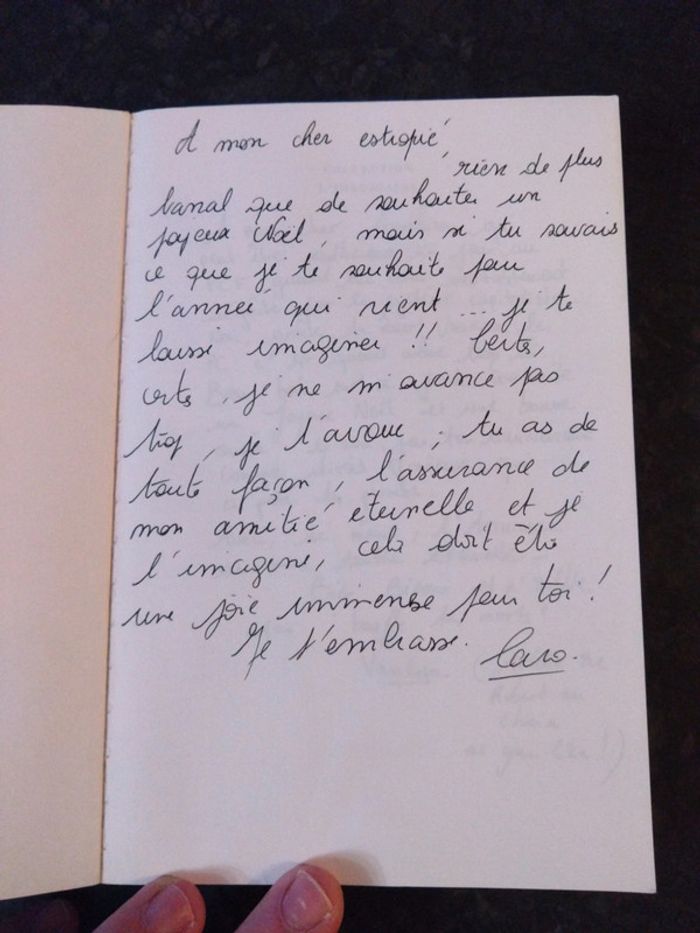 A mon cher estropié
rien de plus
banal que de souhaiter un
joyeux Noël, mais si tu savais
ce que je te souhaite pour
l'année qui vient ... je te
laisse imaginer !! Certes,
certes, je ne m'avance pas
trop, je l'avoue ; tu as de
toute façon, l'assurance de
mon amitié éternelle et je
l'imagine, cela doit être
une joie immense pour toi !
Je t'embrasse. Caro.